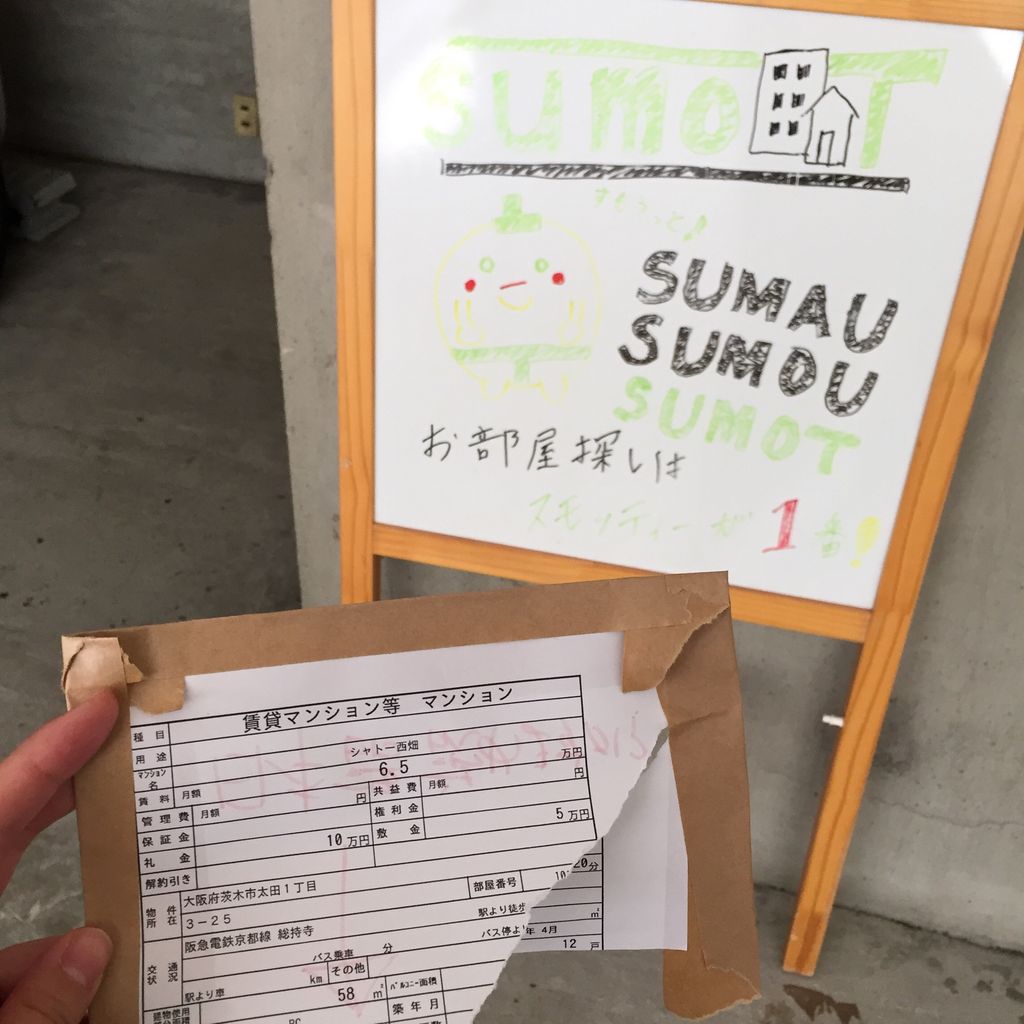 SUMOT
すもうっと♪
SUMAU
SUMOU
SUMOT
お部屋探しは
スモッティーが1番!
種目 賃貸マンション等 マンション
用途
マンション名 シャトー西畑
賃料 月額 6.5 万円
管理費 月額 円 共益費 月額 円
保証金 権利金
礼金 10万円 敷金 5万円
解約引き
物件所在 大阪府茨木市太田1丁目 部屋番号 10
3-25
交通状況 阪急電鉄京都線 総持寺 駅より徒歩 20分
バス乗車 分 バス停より
駅より車 km その他
58 ㎡ バルコニー面積 ㎡
築年月 年 4月
12 戸